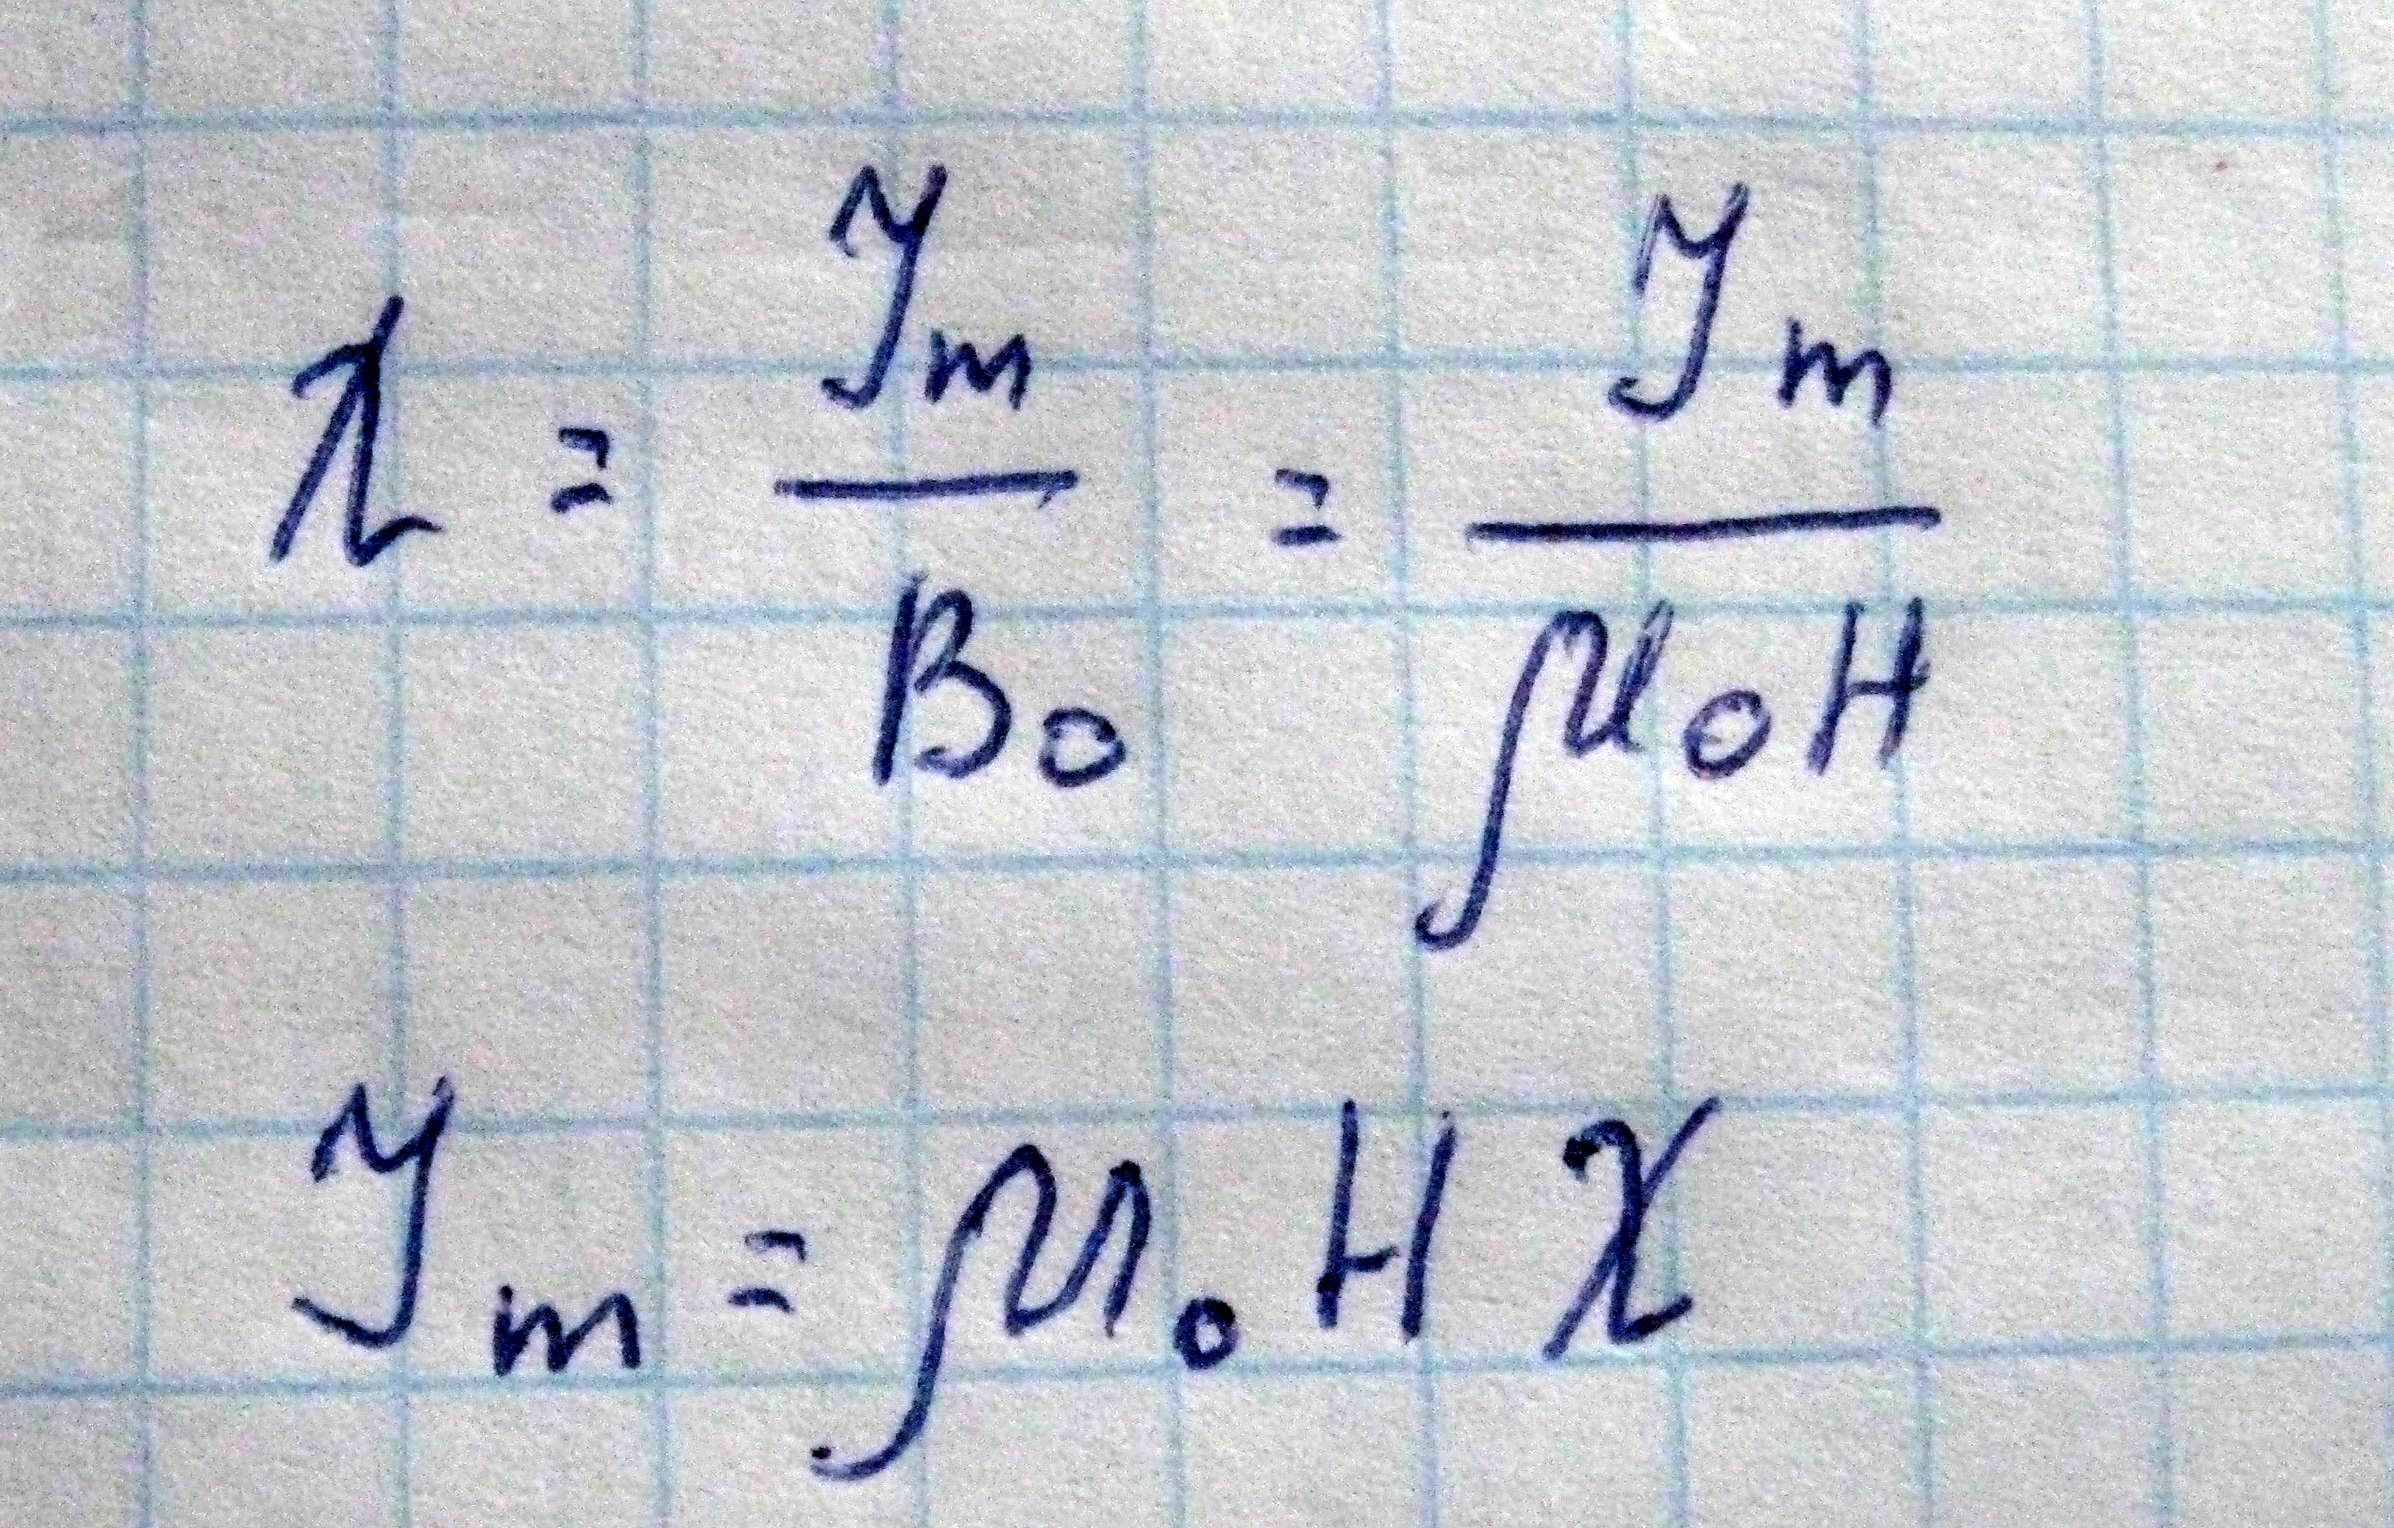 χ = J_m / B_0 = J_m / μ_0 H
J_m = μ_0 H χ